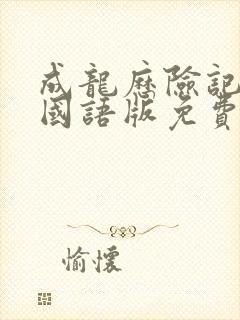 成龍歷險記
國語版免費
愉懷